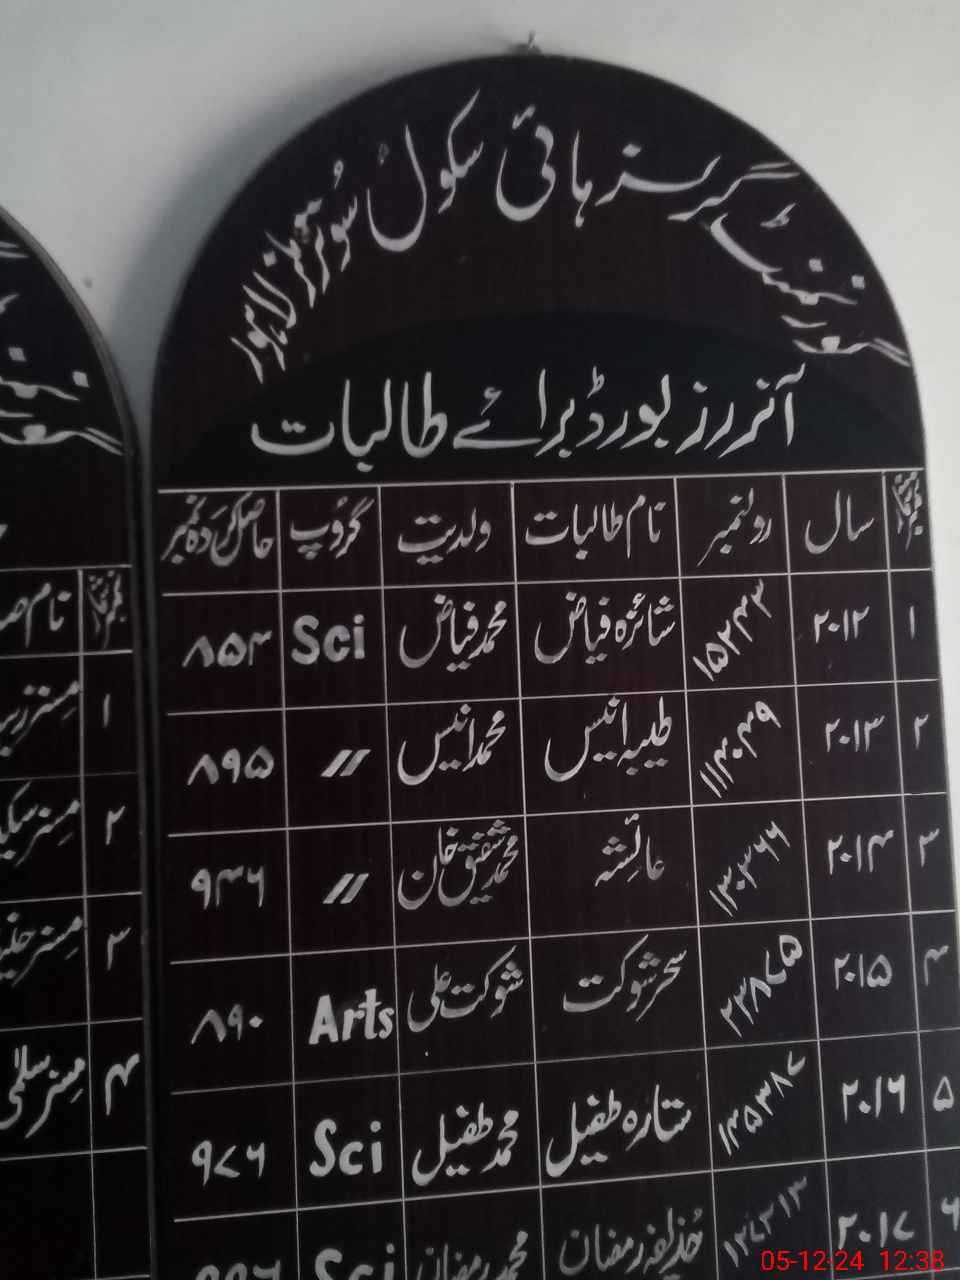 گورنمنٹ گرلز ہائی سکول
لاہور
آنرز بورڈ برائے طالبات
نمبر شمار سال رولنمبر نام طالبات ولدیت گروپ حاصل کردہ نمبر
۱ ۲۰۱۲ ۱۵۲۴۳ شائزہ فیاض محمد فیاض Sci ۸۵۴
۲ ۲۰۱۳ ۱۱۴۰۴۹ طیبہ انیس محمد انیس // ۸۹۵
۳ ۲۰۱۴ ۱۳۰۳۶۶ عائشہ محمد شفیق خان // ۹۴۶
۴ ۲۰۱۵ ۲۳۸۷۵ سحر شوکت شوکت علی Arts ۸۹۰
۵ ۲۰۱۶ ۱۴۵۳۸۷ ستارہ طفیل محمد طفیل Sci ۹۷۶
۶ ۲۰۱۷ رمضان محمد رمضان Sci
نمبر شمار نام
۱ مسز
۲ مسز
۳ مسز
۴ مسز سلمیٰ
05-12-24 12:38